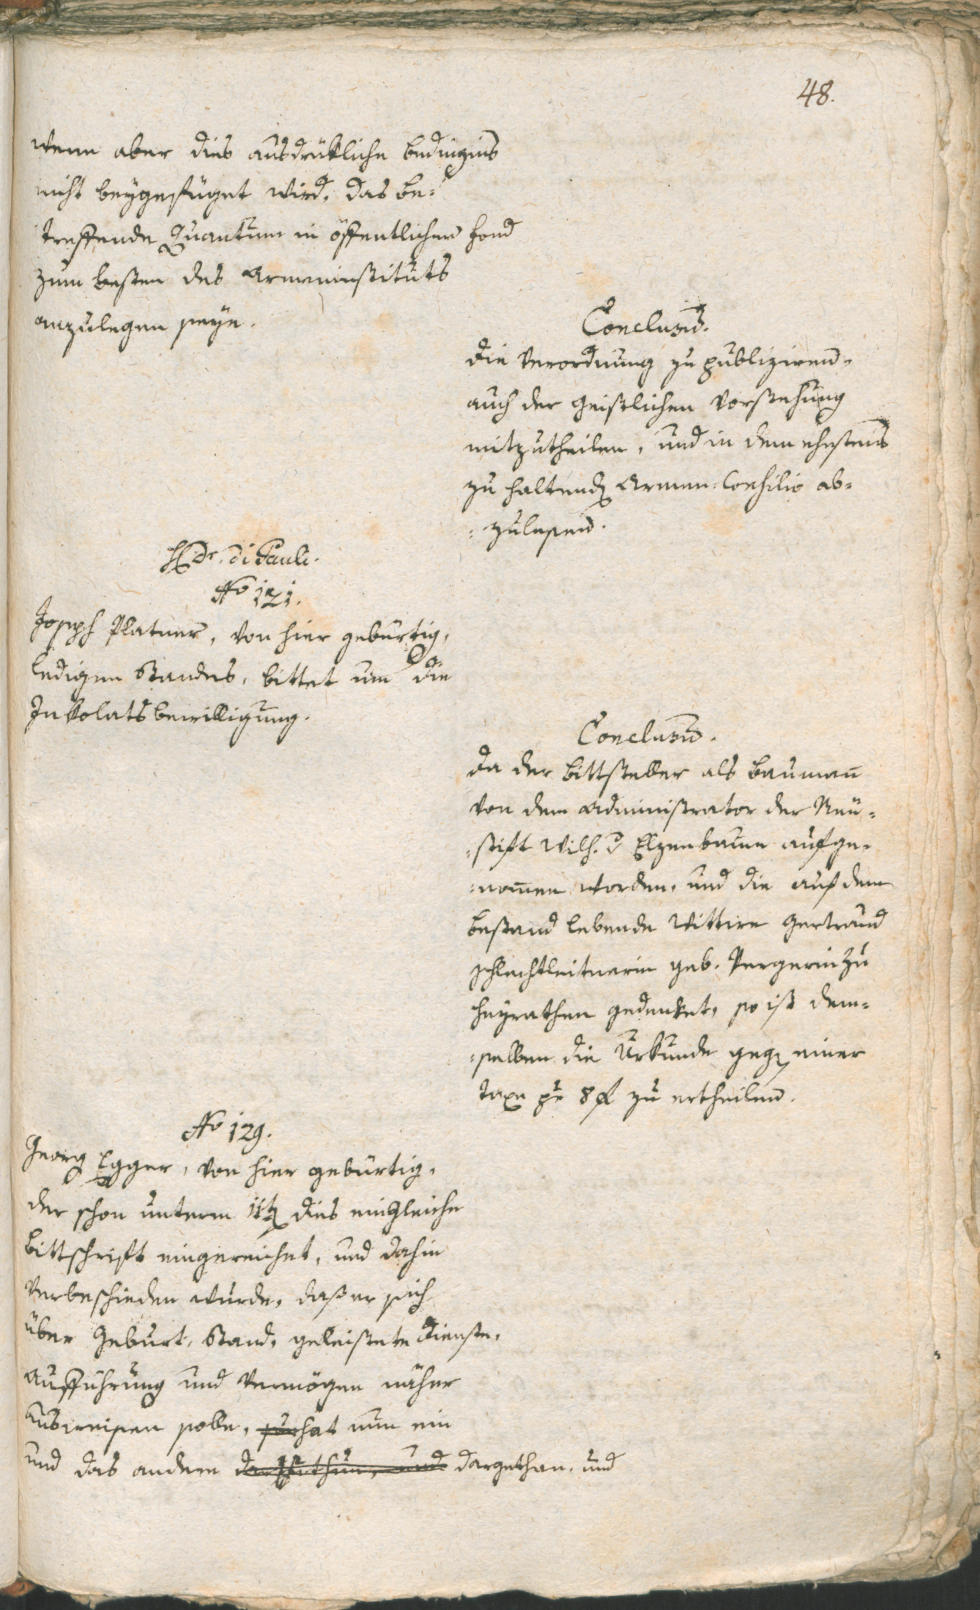 48.
wenn aber dies ausdrükliche Bedingnis
nicht beygefüget wird, das be-
treffende Quantum in öffentlichen Fond
zum besten des Armeninstituts
anzulegen seye.
Conclusum.
Die Verordnung zu publiziren,
auch der geistlichen Vorstehung
mitzutheilen, und in dem ehestens
zu haltenden Armen-Consilio ab-
zulesen.
H Dr. di Pauli.
No 121.
Joseph Platner, von hier gebürtig,
ledigen Standes, bittet um die
Inkolatsbewilligung.
Conclusum.
Da der Bittsteller als Baumann
von dem Administrator der Neu-
stift Wilh. v Elzenbaum aufge-
nommen worden, und die auf dem
Bestand lebende Wittwe Gertraud
Schlechtleitnerin geb. Pergerin zu
heyrathen gedenket, so ist dem-
selben die Urkunde gegen einer
Taxe pr 8 f zu ertheilen.
No 129.
Georg Egger, von hier gebürtig,
der schon unterm 11ten dies ein gleiche
Bittschrift eingereichet, und dahin
verbeschieden wurde, daß er sich
über Geburt, Stand, geleistete Dienste,
Aufführung und Vermögen näher
ausweisen solle, hat nun ein
und das andere dargethan, und